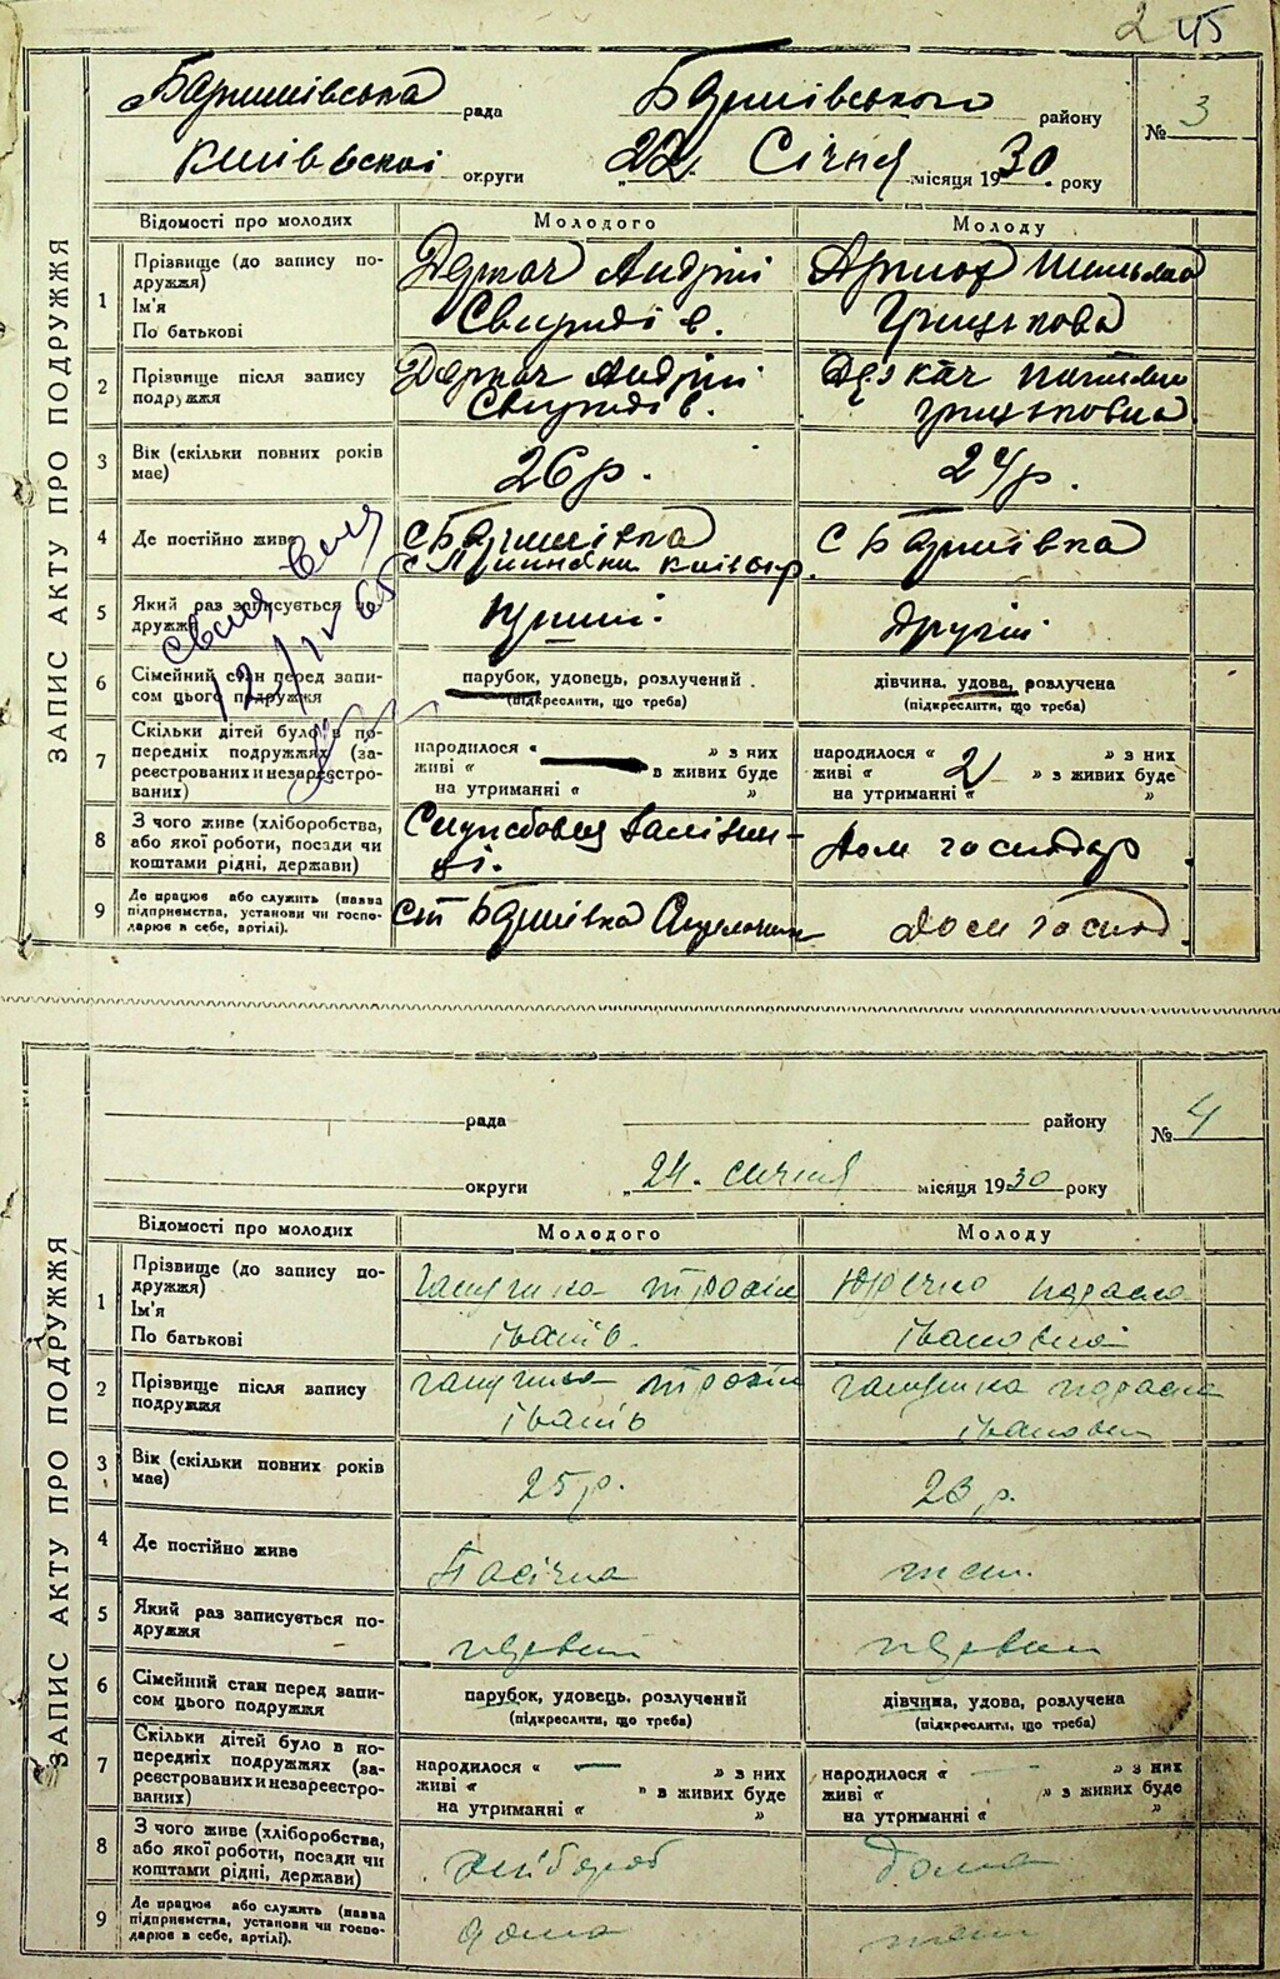 2 45
ЗАПИС АКТУ ПРО ПОДРУЖЖЯ
Баришівська рада Баришівського району № 3
Київськоі округи „22. Січня місяця 1930. року
Відомості про молодих Молодого Молоду
1 Прізвище (до запису подружжя) Деркач Андрій
Ім'я
По батькові Свиридів. Грицькова
2 Прізвище після запису подружжя Деркач Андрій Деркач
Свиридів. Грицьковна
3 Вік (скільки повних років має) 26 р. 24 р.
4 Де постійно живе с Баришівка с Баришівка
5 Який раз записується подружжя Другий
6 Сімейний стан перед записом цього подружжя парубок, удовець, розлучений. дівчина, удова, розлучена
(підкреслити, що треба) (підкреслити, що треба)
7 Скільки дітей було в попередніх подружжях (зареєстрованих и незареєстрованих) народилося « — » з них народилося « 2 » з них
живі « в живих буде живі « » з живих буде
на утриманні « » на утриманні « »
8 З чого живе (хліборобства, або якої роботи, посади чи коштами рідні, держави) Дом господар
9 Де працює або служить (назва підприємства, установи чи господарює в себе, артілі). ст Баришівка Дом господ.
12/IV 65
ЗАПИС АКТУ ПРО ПОДРУЖЖЯ
рада району № 4
округи „24. сичня місяця 1930 року
Відомості про молодих Молодого Молоду
1 Прізвище (до запису подружжя) Трохім Параска
Ім'я
По батькові Іванів. Івановна
2 Прізвище після запису подружжя Трохім Параска
Іванів Івановн
3 Вік (скільки повних років має) 25 р. 23 р.
4 Де постійно живе Пасічна теж.
5 Який раз записується подружжя первий первий
6 Сімейний стан перед записом цього подружжя парубок, удовець, розлучений дівчина, удова, розлучена
(підкреслити, що треба) (підкреслити, що треба)
7 Скільки дітей було в попередніх подружжях (зареєстрованих и незареєстрованих) народилося « — » з них народилося « — » з них
живі « » в живих буде живі « » з живих буде
на утриманні « » на утриманні « »
8 З чого живе (хліборобства, або якої роботи, посади чи коштами рідні, держави) хлібороб дома
9 Де працює або служить (назва підприємства, установи чи господарює в себе, артілі). дома теж